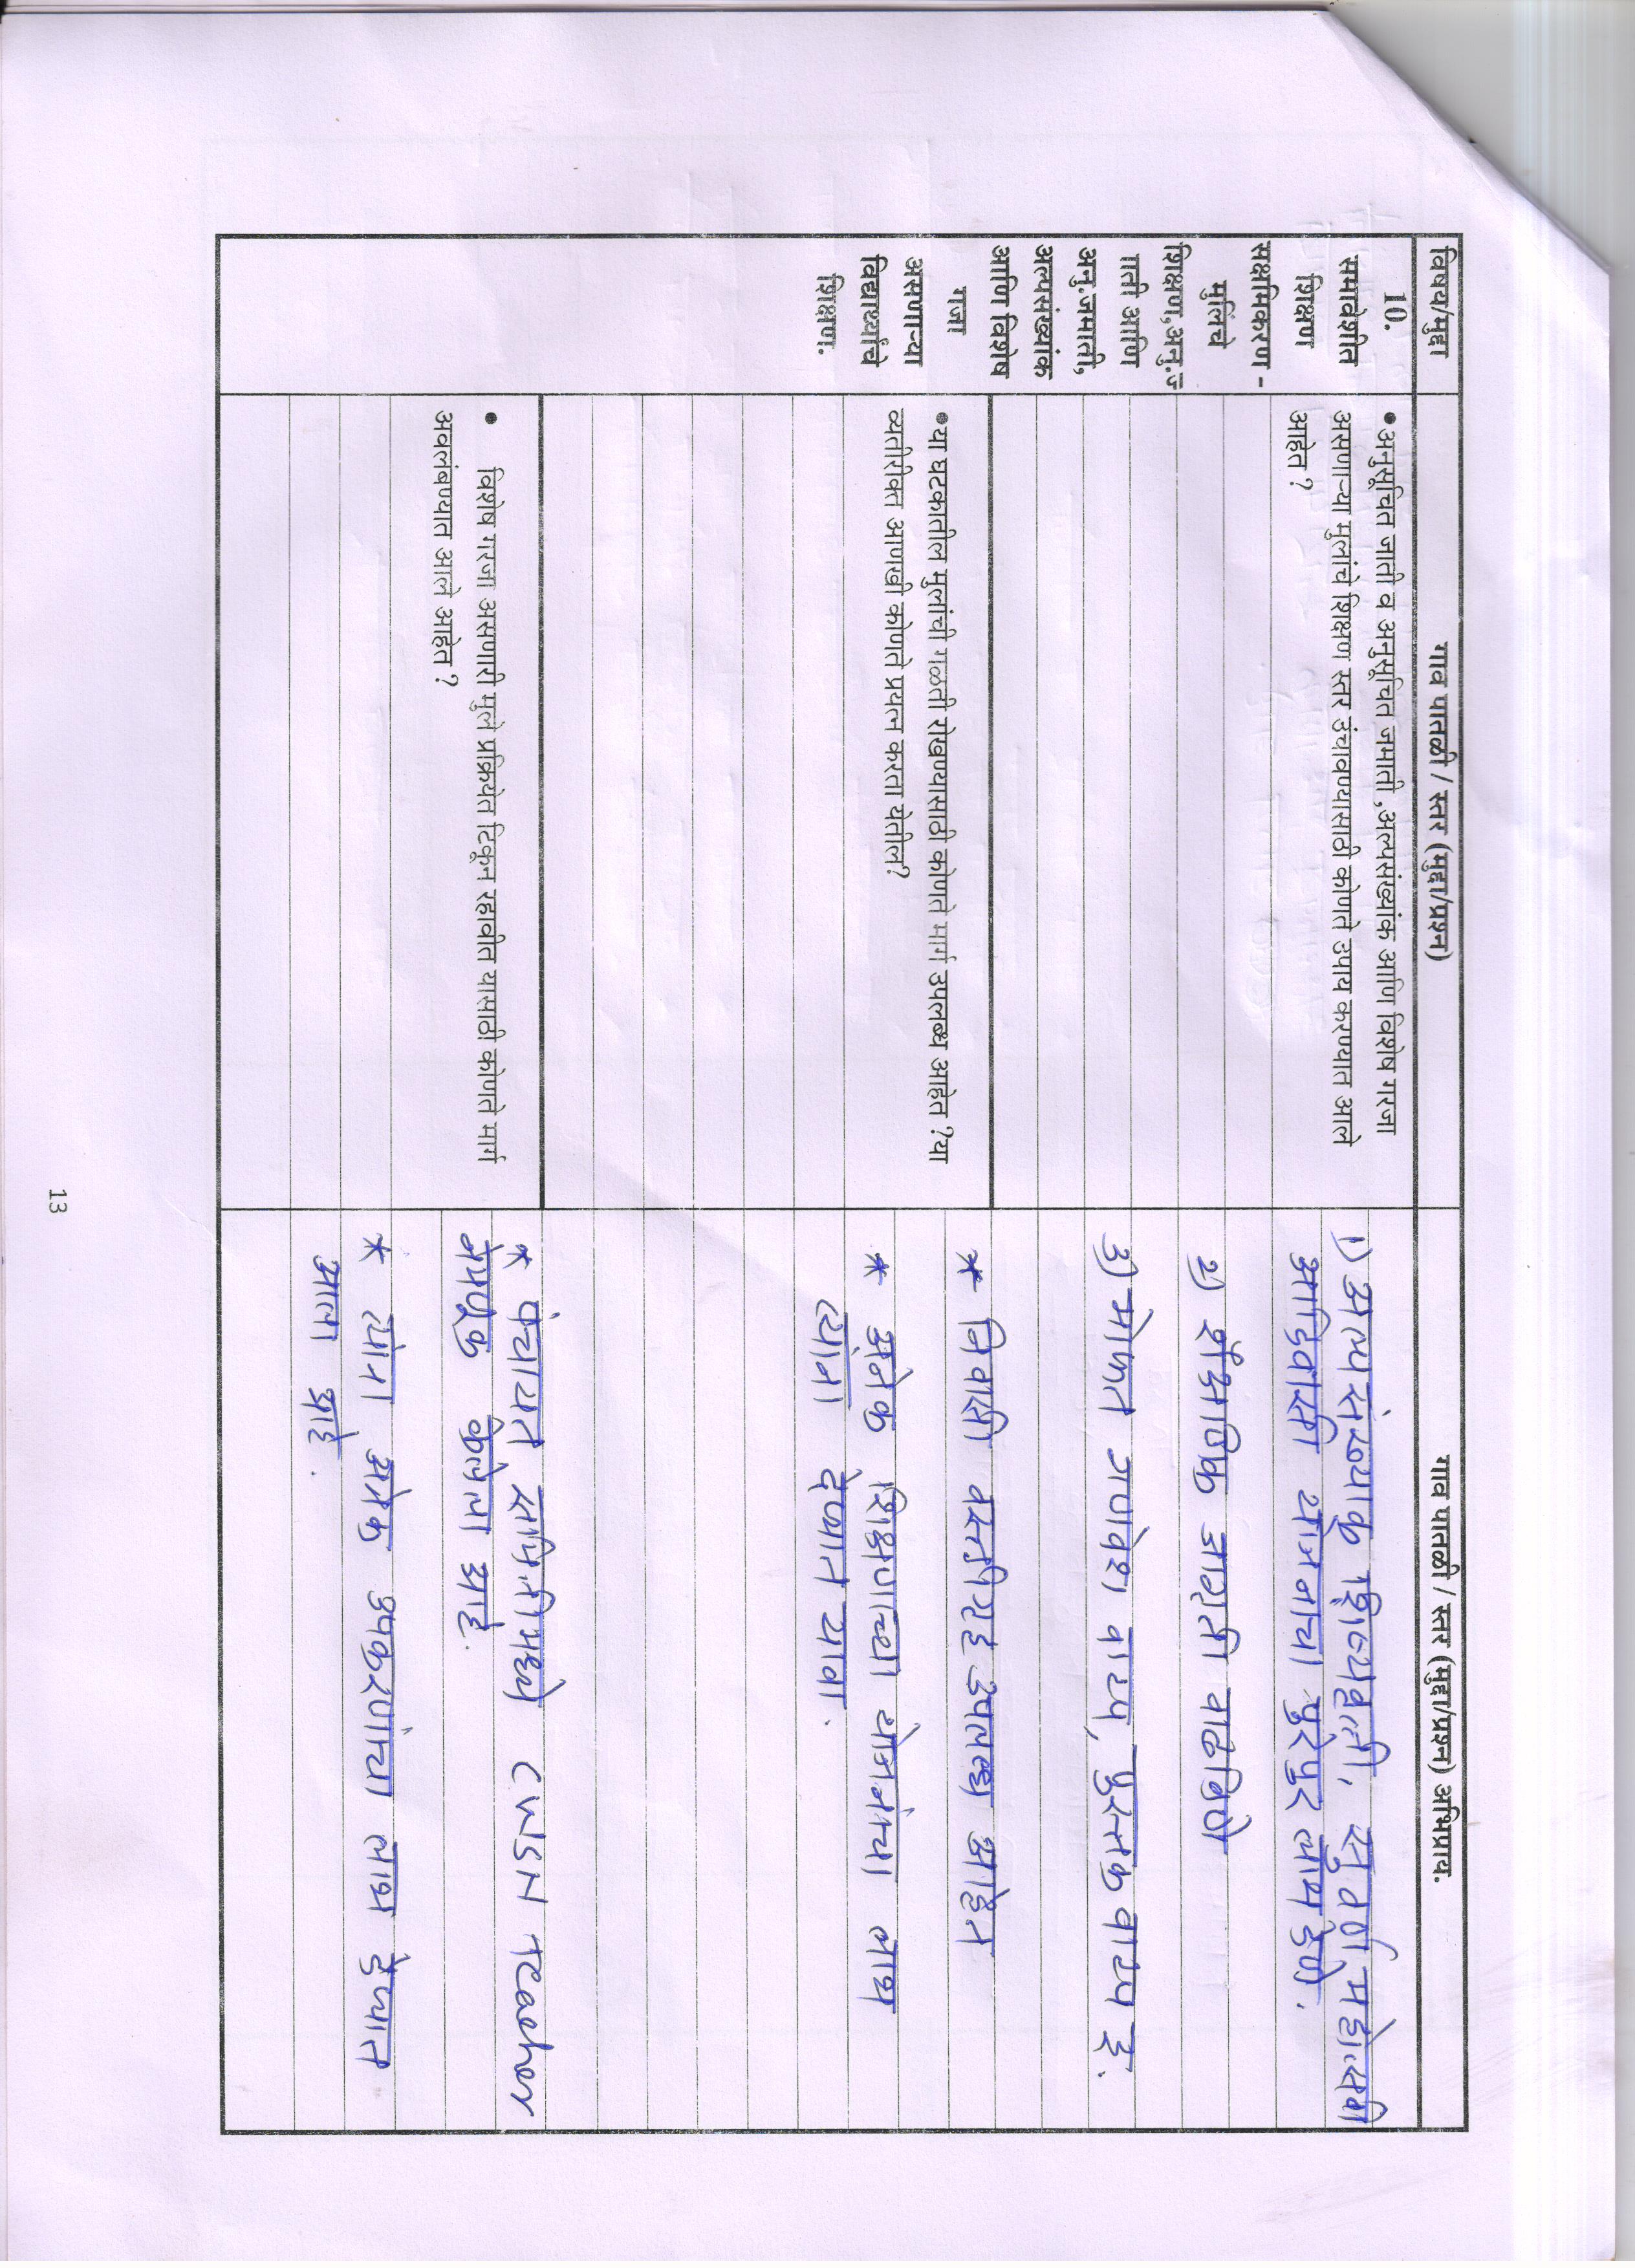 विषय/मुद्दा
गाव पातळी / स्तर (मुद्दा/प्रश्न)
गाव पातळी / स्तर (मुद्दा/प्रश्न) अभिप्राय.
10.
समावेशीत
शिक्षण
सक्षमिकरण -
मुलिंचे
शिक्षण,अनु.ज
ाती आणि
अनु.जमाती,
अल्पसंख्यांक
आणि विशेष
गरजा
असणाऱ्या
विद्यार्थ्यांचे
शिक्षण.
●अनुसूचित जाती व अनुसूचित जमाती ,अल्पसंख्यांक आणि विशेष गरजा
असणाऱ्या मुलांचे शिक्षण स्तर उंचावण्यासाठी कोणते उपाय करण्यात आले
आहेत ?
१) अल्पसंख्याक शिष्यवृत्ती, सुवर्ण महोत्सवी
आदिवासी योजनाचा पुरेपुर लाभ देणे.
२) शैक्षणिक जागृती वाढविणे
३) मोफत गणवेश वाटप, पुस्तक वाटप इ.
●या घटकातील मुलांची गळती रोखण्यासाठी कोणते मार्ग उपलब्ध आहेत ?या
व्यतीरिक्त आणखी कोणते प्रयत्न करता येतील?
* निवासी वस्तीगृह उपलब्ध आहेत
* अनेक शिक्षणाच्या योजनांचा लाभ
त्यांना देण्यात यावा.
● विशेष गरजा असणारी मुले प्रक्रियेत टिकून रहावीत यासाठी कोणते मार्ग
अवलंबण्यात आले आहेत ?
* पंचायत समितीमध्ये CWSN Teacher
नेमणूक केलेला आहे.
* त्यांना अनेक उपकरणांचा लाभ देण्यात
आला आहे.
13